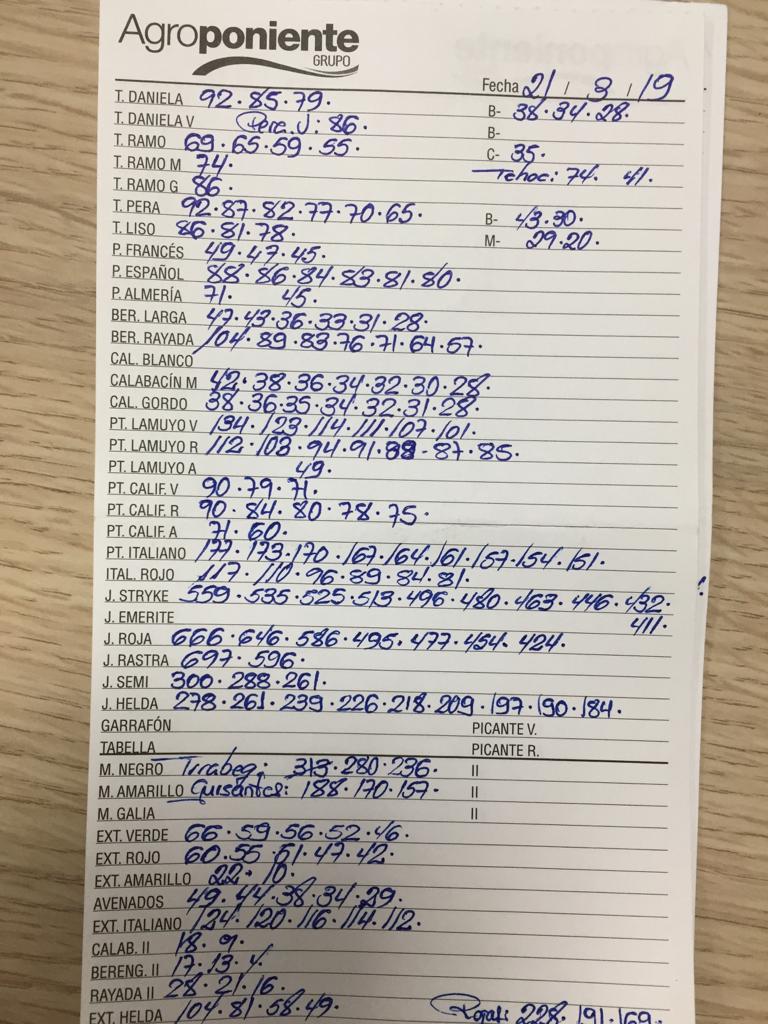 Agroponiente
GRUPO
Fecha 21 / 3 / 19
T. DANIELA 92 · 85 · 79 · B- 38 · 34 · 28 ·
T. DANIELA V Pera V: 86 · B-
T. RAMO 69 · 65 · 59 · 55 · C- 35 ·
T. RAMO M 74 · Tchoc: 74 · 41 ·
T. RAMO G 86 ·
T. PERA 92 · 87 · 82 · 77 · 70 · 65 · B- 43 · 30 ·
T. LISO 86 · 81 · 78 · M- 29 · 20 ·
P. FRANCÉS 49 · 47 · 45 ·
P. ESPAÑOL 88 · 86 · 84 · 83 · 81 · 80 ·
P. ALMERÍA 71 · 45 ·
BER. LARGA 47 · 43 · 36 · 33 · 31 · 28 ·
BER. RAYADA 104 · 89 · 83 · 76 · 71 · 64 · 57 ·
CAL. BLANCO
CALABACÍN M 42 · 38 · 36 · 34 · 32 · 30 · 28 ·
CAL. GORDO 38 · 36 · 35 · 34 · 32 · 31 · 28 ·
PT. LAMUYO V 134 · 123 · 114 · 111 · 107 · 101 ·
PT. LAMUYO R 112 · 103 · 94 · 91 · 88 - 87 · 85 ·
PT. LAMUYO A 49 ·
PT. CALIF. V 90 · 79 · 71 ·
PT. CALIF. R 90 · 84 · 80 · 78 · 75 ·
PT. CALIF. A 71 · 60 ·
PT. ITALIANO 177 · 173 · 170 · 167 · 164 · 161 · 157 · 154 · 151 ·
ITAL. ROJO 117 · 110 · 96 · 89 · 84 · 81 ·
J. STRYKE 559 · 535 · 525 · 513 · 496 · 480 · 463 · 446 · 432 ·
J. EMERITE 411 ·
J. ROJA 666 · 646 · 586 · 495 · 477 · 454 · 424 ·
J. RASTRA 697 · 596 ·
J. SEMI 300 · 288 · 261 ·
J. HELDA 278 · 261 · 239 · 226 · 218 · 209 · 197 · 190 · 184 ·
GARRAFÓN PICANTE V.
TABELLA PICANTE R.
M. NEGRO Tirabeq: 313 · 280 · 236 · II
M. AMARILLO Guisantes: 188 · 170 · 157 · II
M. GALIA II
EXT. VERDE 66 · 59 · 56 · 52 · 46 ·
EXT. ROJO 60 · 55 · 51 · 47 · 42 ·
EXT. AMARILLO 22 · 10 ·
AVENADOS 49 · 44 · 38 · 34 · 29 ·
EXT. ITALIANO 124 · 120 · 116 · 114 · 112 ·
CALAB. II 18 · 9 ·
BERENG. II 17 · 13 ·
RAYADA II 28 · 21 · 16 ·
EXT. HELDA 104 · 81 · 58 · 49 · 228 · 191 · 169 ·